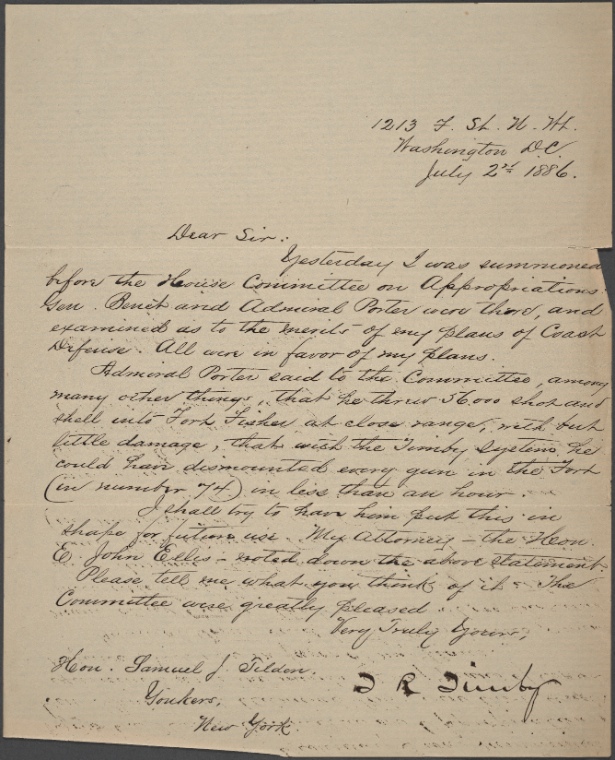 1213 F. St. N. W.
Washington D.C.
July 2nd 1886.
Dear Sir:
Yesterday I was summoned
before the House Committee on Appropriations
Gen. Benét and Admiral Porter were there, and
examined as to the merits of my plans of Coast
Defense. All were in favor of my plans.
Admiral Porter said to the Committee, among
many other things, that he threw shot and
shell into Fort Fisher at close range, with but
little damage, that with the Timby System he
could have dismounted every gun in the Fort
(in number 74) in less than an hour.
I shall try to have him put this in
shape for future use. My Attorney - the Hon.
E. John Ellis - noted down the above statement.
Please tell me what you think of it. The
Committee were greatly pleased.
Very Truly Yours,
T R Timby
Hon. Samuel J. Tilden.
Yonkers,
New York.